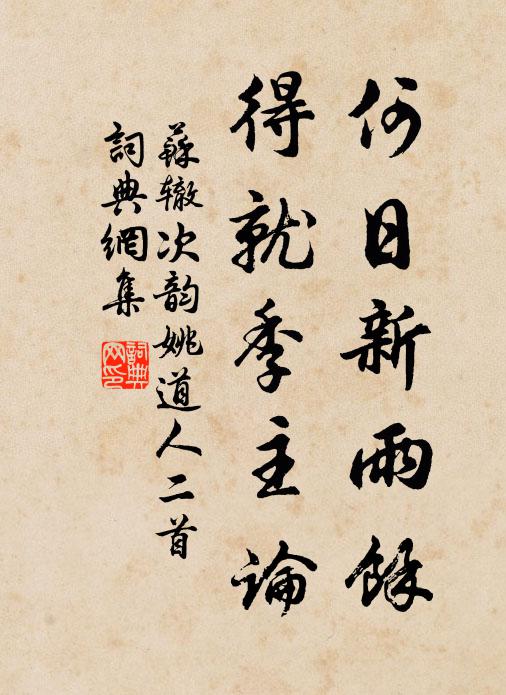 何日新雨餘
得就季主論
蘇辙次韵姚道人二首
詞典網集
詞典網印